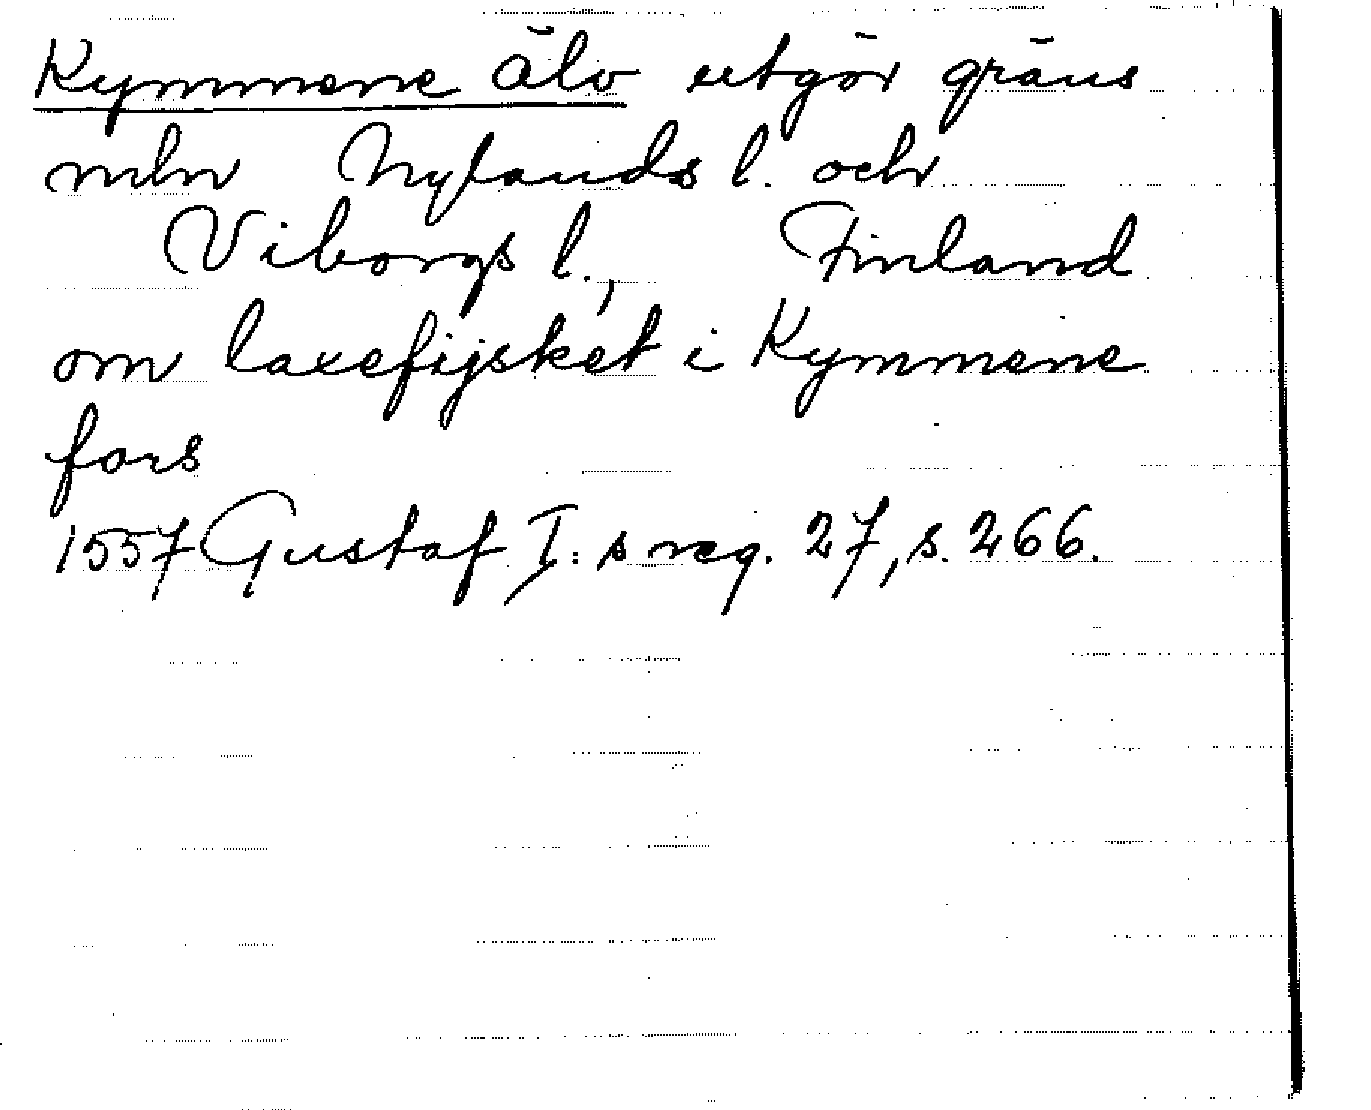 Kymmene älv utgör gräns
mln Nylands l. och
Viborgs l., Finland
om laxefijsket i Kymmene
fors
1557 Gustaf I:s reg. 27, s. 266.